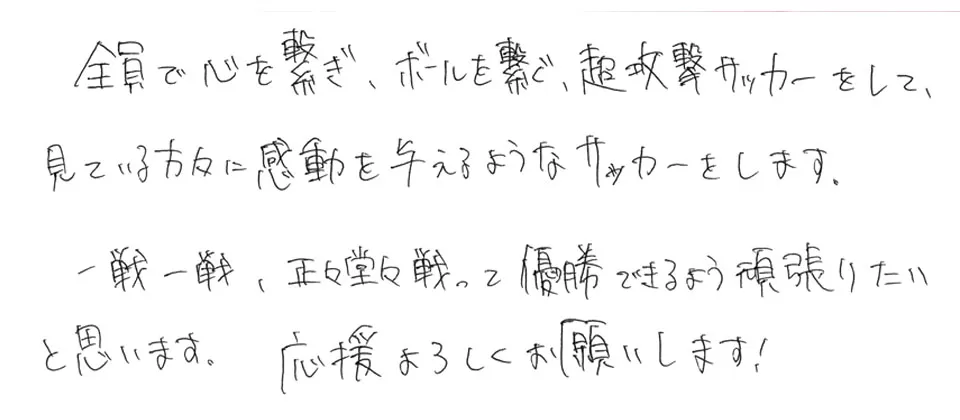 全員で心を繋ぎ、ボールを繋ぐ、超攻撃サッカーをして、
見ている方々に感動を与えるようなサッカーをします。
一戦一戦、正々堂々戦って優勝できるよう頑張りたい
と思います。 応援よろしくお願いします!